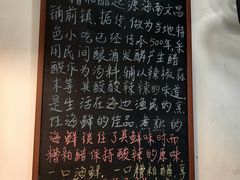 糟粕醋起源海南文昌
铺前镇，据传，做为当地特
色小吃已经传承500年，采
用民间酿酒发酵产生醋
酸水为汤料，辅以辣椒、蒜
末等，其酸酸辣辣的味道
是生活在海边渔民的烹
饪海鲜的佳品，煮熟的
海鲜锁住了其鲜味时而
糟粕醋保持酸辣的原味
一口海鲜，一口糟粕醋，享